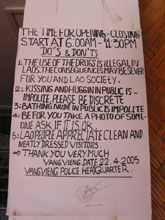 THE TIME FOR OPENING - CLOSING
START AT 6.00AM - 11:30PM
DO'S & DON'TS
1. THE USE OF THE DRUGS IS ILLEGAL IN
LAOS. THE CONSEQUENCES MAY BE SEVER
FOR YOU AND LAO SOCIETY.
2. KISSING AND HUGGIN IN PUBLIC IS
IMPOLITE, PLEASE BE DISCRETE
3. BATHING NUDE IN PUBLIC IS IMPOLITE
4. BE FOR YOU TAKE A PHOTO OF SOME-
ONE ASK IF IT IS OK
5. LAO PEOPLE APPRECIATE CLEAN AND
NEATLY DRESSED VISITORS
THANK YOU VERY MUCH
VANGVIENG DATE 22.4.2005
VANGVIENG POLICE HEADQUARTER.